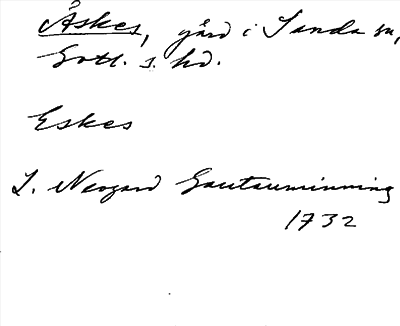 Åskes, gård i Sanda sn,
Gotl. s. hd.
Eskes
L. Neogard Gautauminning
1732